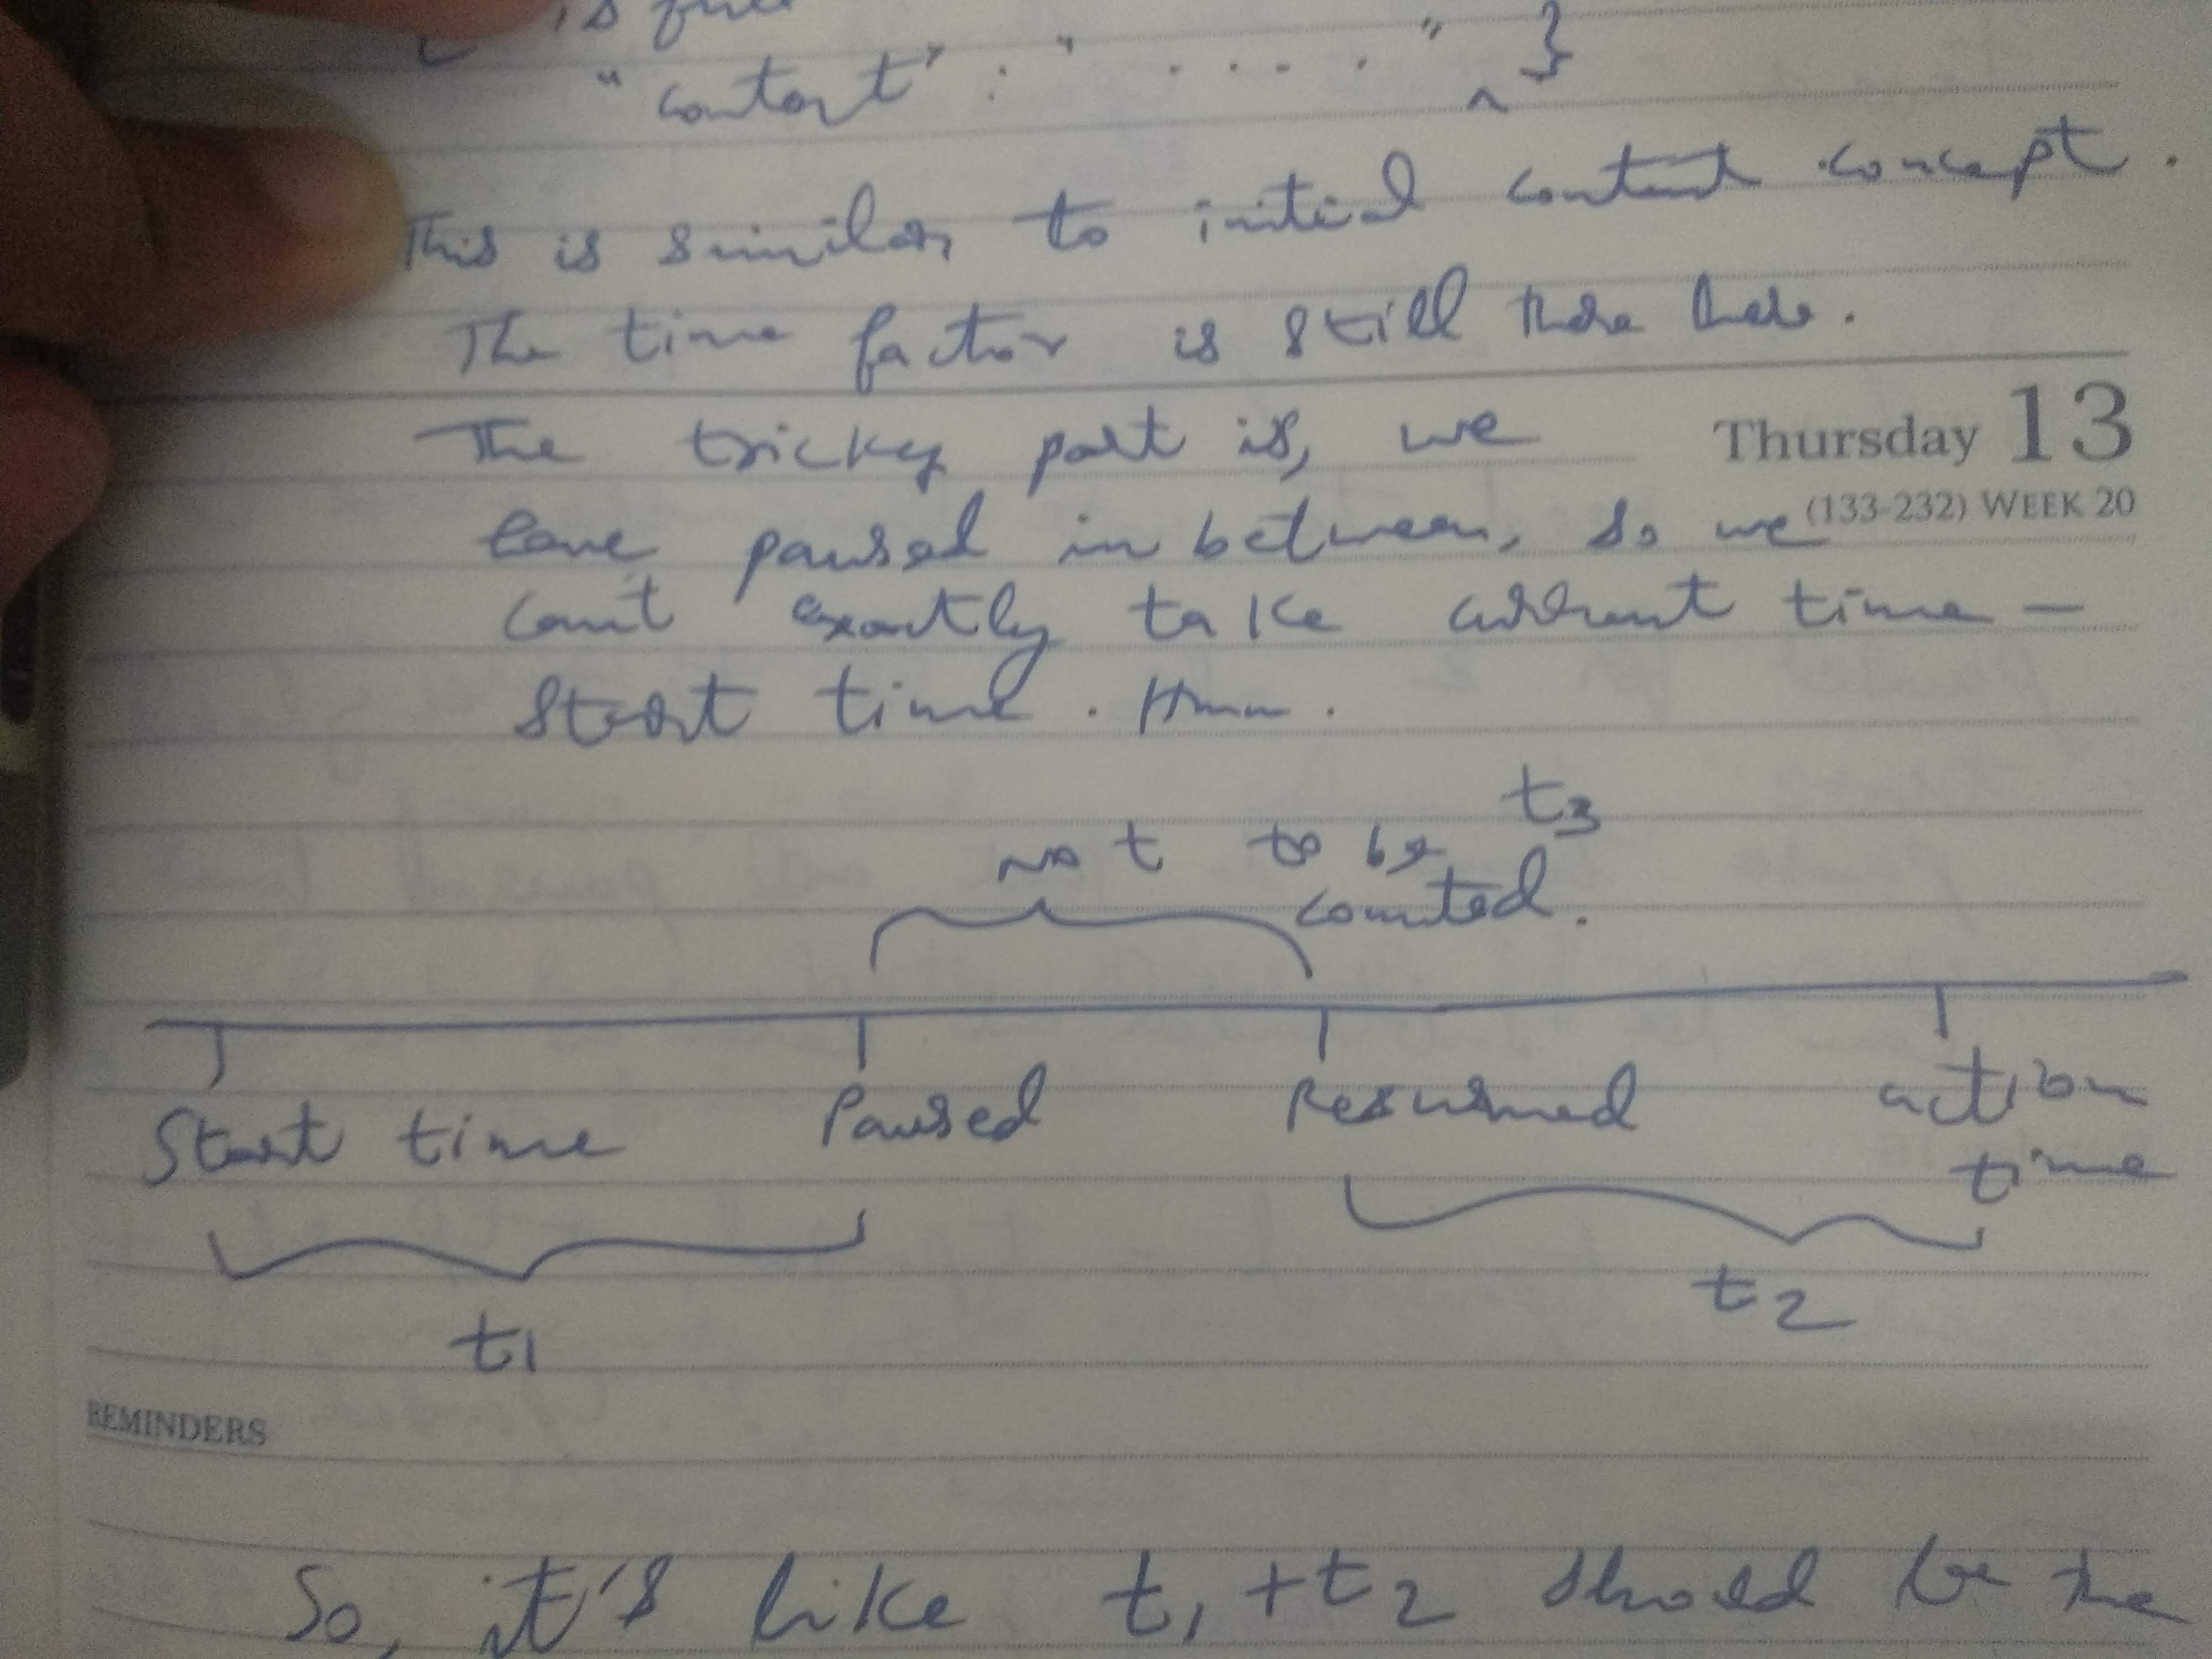 is
"content" : " . . . . " }
This is similar to initial content concept.
The time factor is still there here.
The tricky part is, we
Thursday 13
have paused in between, so we
(133-232) WEEK 20
can't exactly take current time –
start time. Hmm.
t3
not to be
counted.
Start time Paused Resumed action
time
t1
t2
REMINDERS
So, it's like t1 + t2 should be the